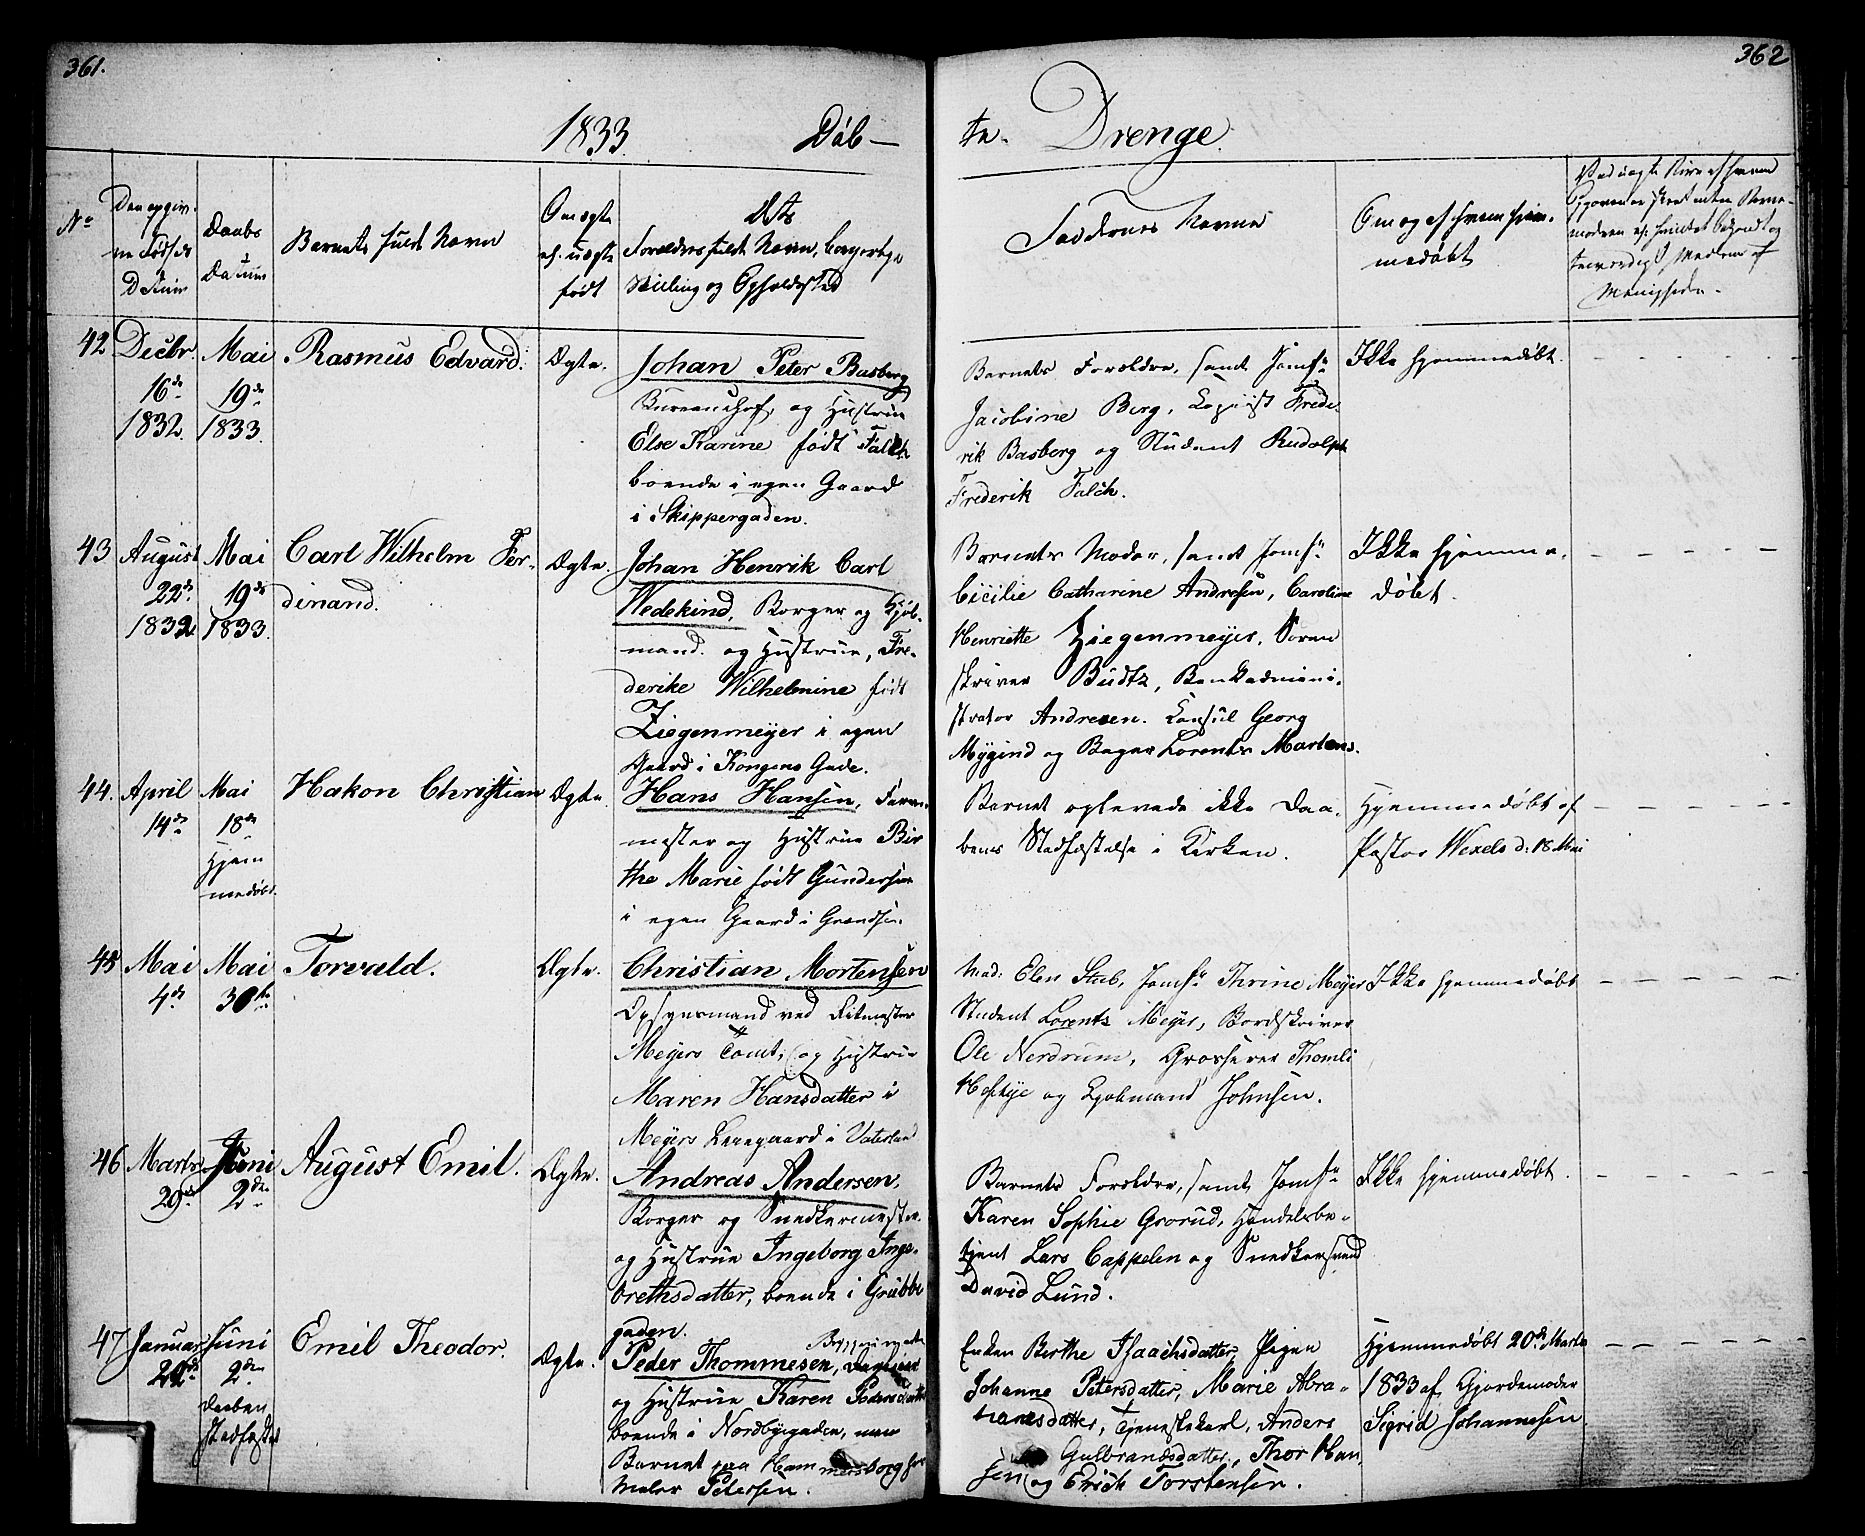 361.
362
1833. Døb-
te. Drenge.
No
Den opgiv-
ne Fødsels
Datum
Daabs
Datum
Barnets fulde Navn
Om ægte
el. uægte
født
Dets
Forældres fulde Navn, borgerlige
Stilling og Opholdssted
Faddernes Navne
Om og af hvem hjem-
medøbt
42
Decbr.
16de
1832.
Mai
19de
1833.
Rasmus Edvard.
Ægte.
Johan Peter Basberg
Bureauchef, og Hustrue
Else Karine født Falch
boende i egen Gaard
i Skippergaden.
Barnets Forældre, samt Jomfr
Jacobine Berg, Copiist Frede-
rik Basberg og Student Rudolph
Frederik Falch.
Ikke hjemmedøbt.
43
August
22de
1832
Mai
19de
1833.
Carl Wilhelm Fer-
dinand.
Ægte.
Johan Henrik Carl
Wedekind, Borger og Kjøb-
mand. og Hustrue, Fre-
derike Wilhelmine født
Ziegenmeyer i egen
Gaard i Kongens Gade.
Barnets Moder, samt Jomfr
Cicilie Catharine Andresen, Caroline
Henriette Ziegenmeyer, Soren
skriver Budtz, Bankadmini-
strator Andresen. Consul Georg
Mygind og Bager Lorents Martens.
Ikke hjemme-
døbt.
44.
April
14de
Mai
18de
Hjem
medøbt.
Hakon Christian
Ægte.
Hans Hansen, Farve-
mester og Hustrue Bir
the Marie født Gundersen
i egen Gaard i Grændsen.
Barnet oplevede ikke Daa-
bens Stadfæstelse i Kirken.
Hjemmedøbt af
Pastor Wexels d: 18 Mai
45
Mai
4de
Mai
30te
Torvald.
Ægte.
Christian Mortensen
Opsynsmand ved Ritmester
Meyers Tomt, og Hustrue
Maren Hansdatter i
Meyers Løkkegaard i Vaterland
Mad: Elen Stub, Jomfr Thrine Meyer
Student Lorents Meyer, Bordskriver
Ole Nerdrum, Grosserer Thomle
Heftye og Kjøbmand Johnsen.
Ikke hjemmedøbt
46
Marts
29de
Juni
2den
August Emil.
Ægte.
Andreas Andersen,
Borger og Snedkermester
og Hustrue Ingeborg Inge-
brethsdatter, boende i Grubbe
gaden.
Barnets Forældre, samt Jomfr
Karen Sophie Grorud, Handelsbe-
tjent Lars Cappelen og Snedkersvend
David Lund.
Ikke hjemmedøbt.
47
Januar
22de
Juni
2den
Daaben
stadfæstet
Emil Theodor.
Ægte.
Peder Thommesen,
og Hustrue Karen Pedersdatter
boende i Nordbygaden, men
Barnet paa Hammersborg hos
Maler Petersen.
Enken Berthe Isaachsdatter, Pigen
Johanne Petersdatter, Marie Abra-
hamsdatter, Tjenestekarl, Anders
Gulbrandsdatter, Thor Han
sen og Erich Torstensen.
Hjemmedøbt 20de Marts
1833 af Gjordemoder
Sigrid Johannesen